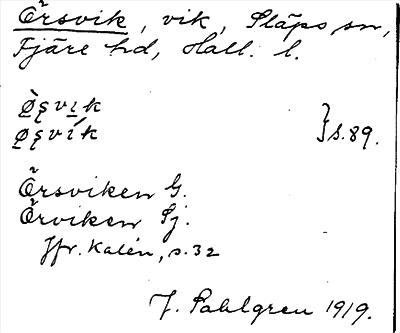 Örsvik, vik, Släps sn,
Fjäre hd, Hall. l.
Ø̀şvı̱k
ø̱şvík } s. 89.
Örsviken G.
Örviken Sj.
Jfr. Kalén, s. 32
J. Sahlgren 1919.